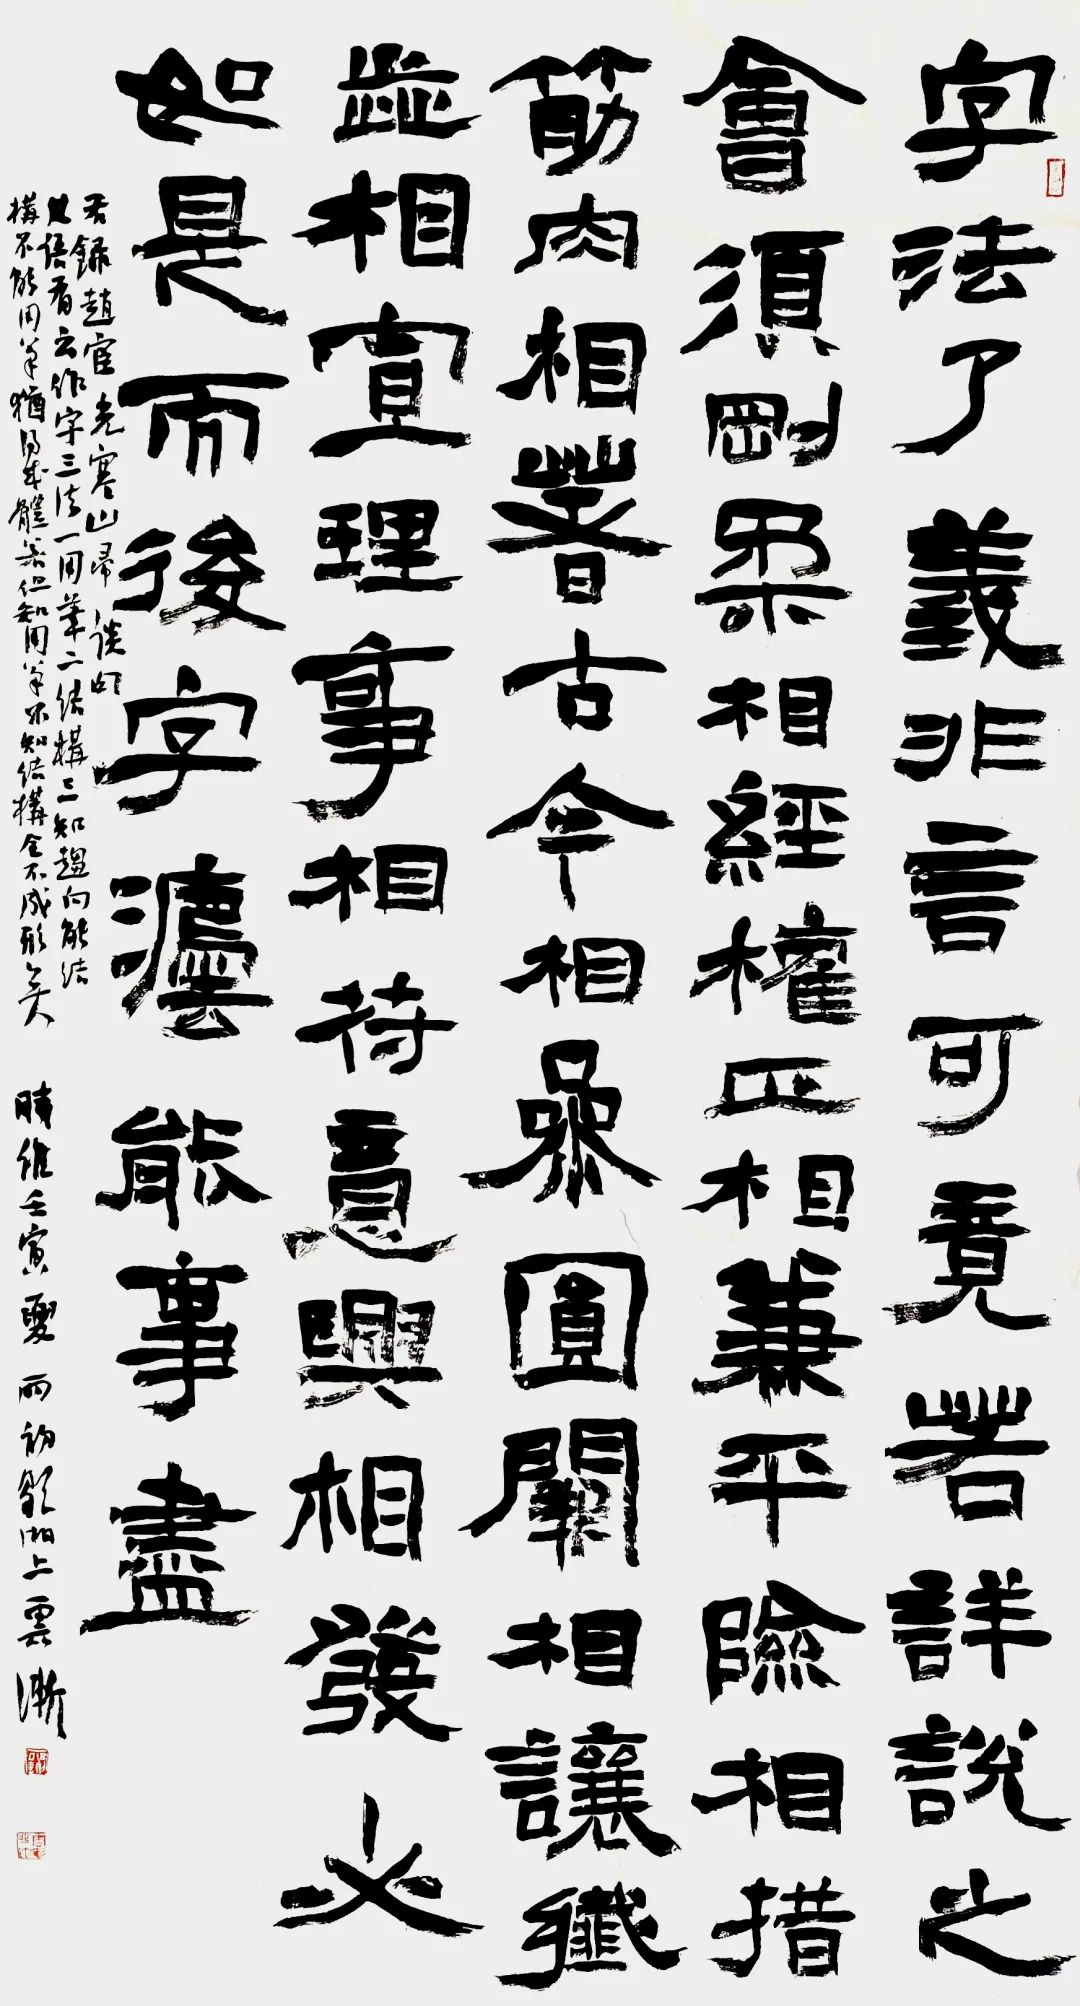 字法了義非言可竟若詳說之
會須剛柔相經權正相兼平險相措
筋肉相著古今相參圓闌相讓纖
並相宜理事相待意興相發必
如是而後字灋能事盡
右錄趙宧光寒山帚談
語有云作字三法一用筆二結構三知趨向能結
構不能用筆猶得成體若但知用筆不知結構全不成形矣
時維壬寅夏雨初歇湘上雲